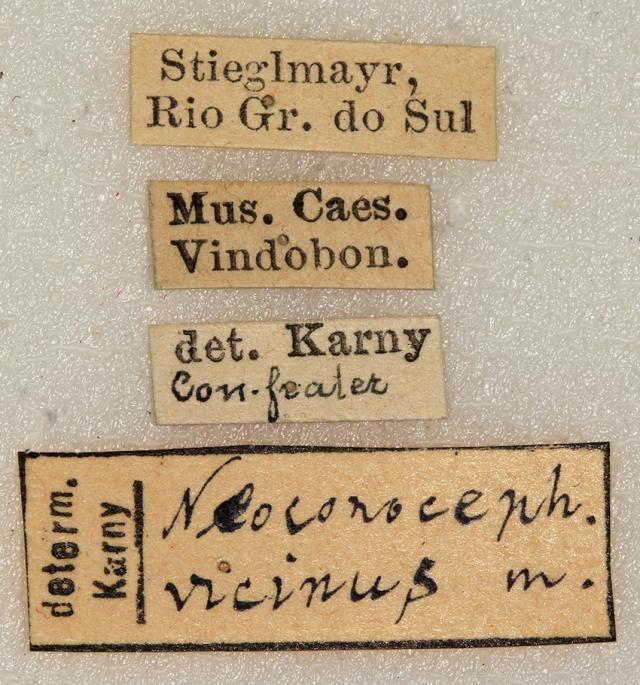 Stieglmayr,
Rio Gr. do Sul
Mus. Caes.
Vindobon.
det. Karny
Con. frater
determ.
Karny
Neoconoceph.
vicinus m.